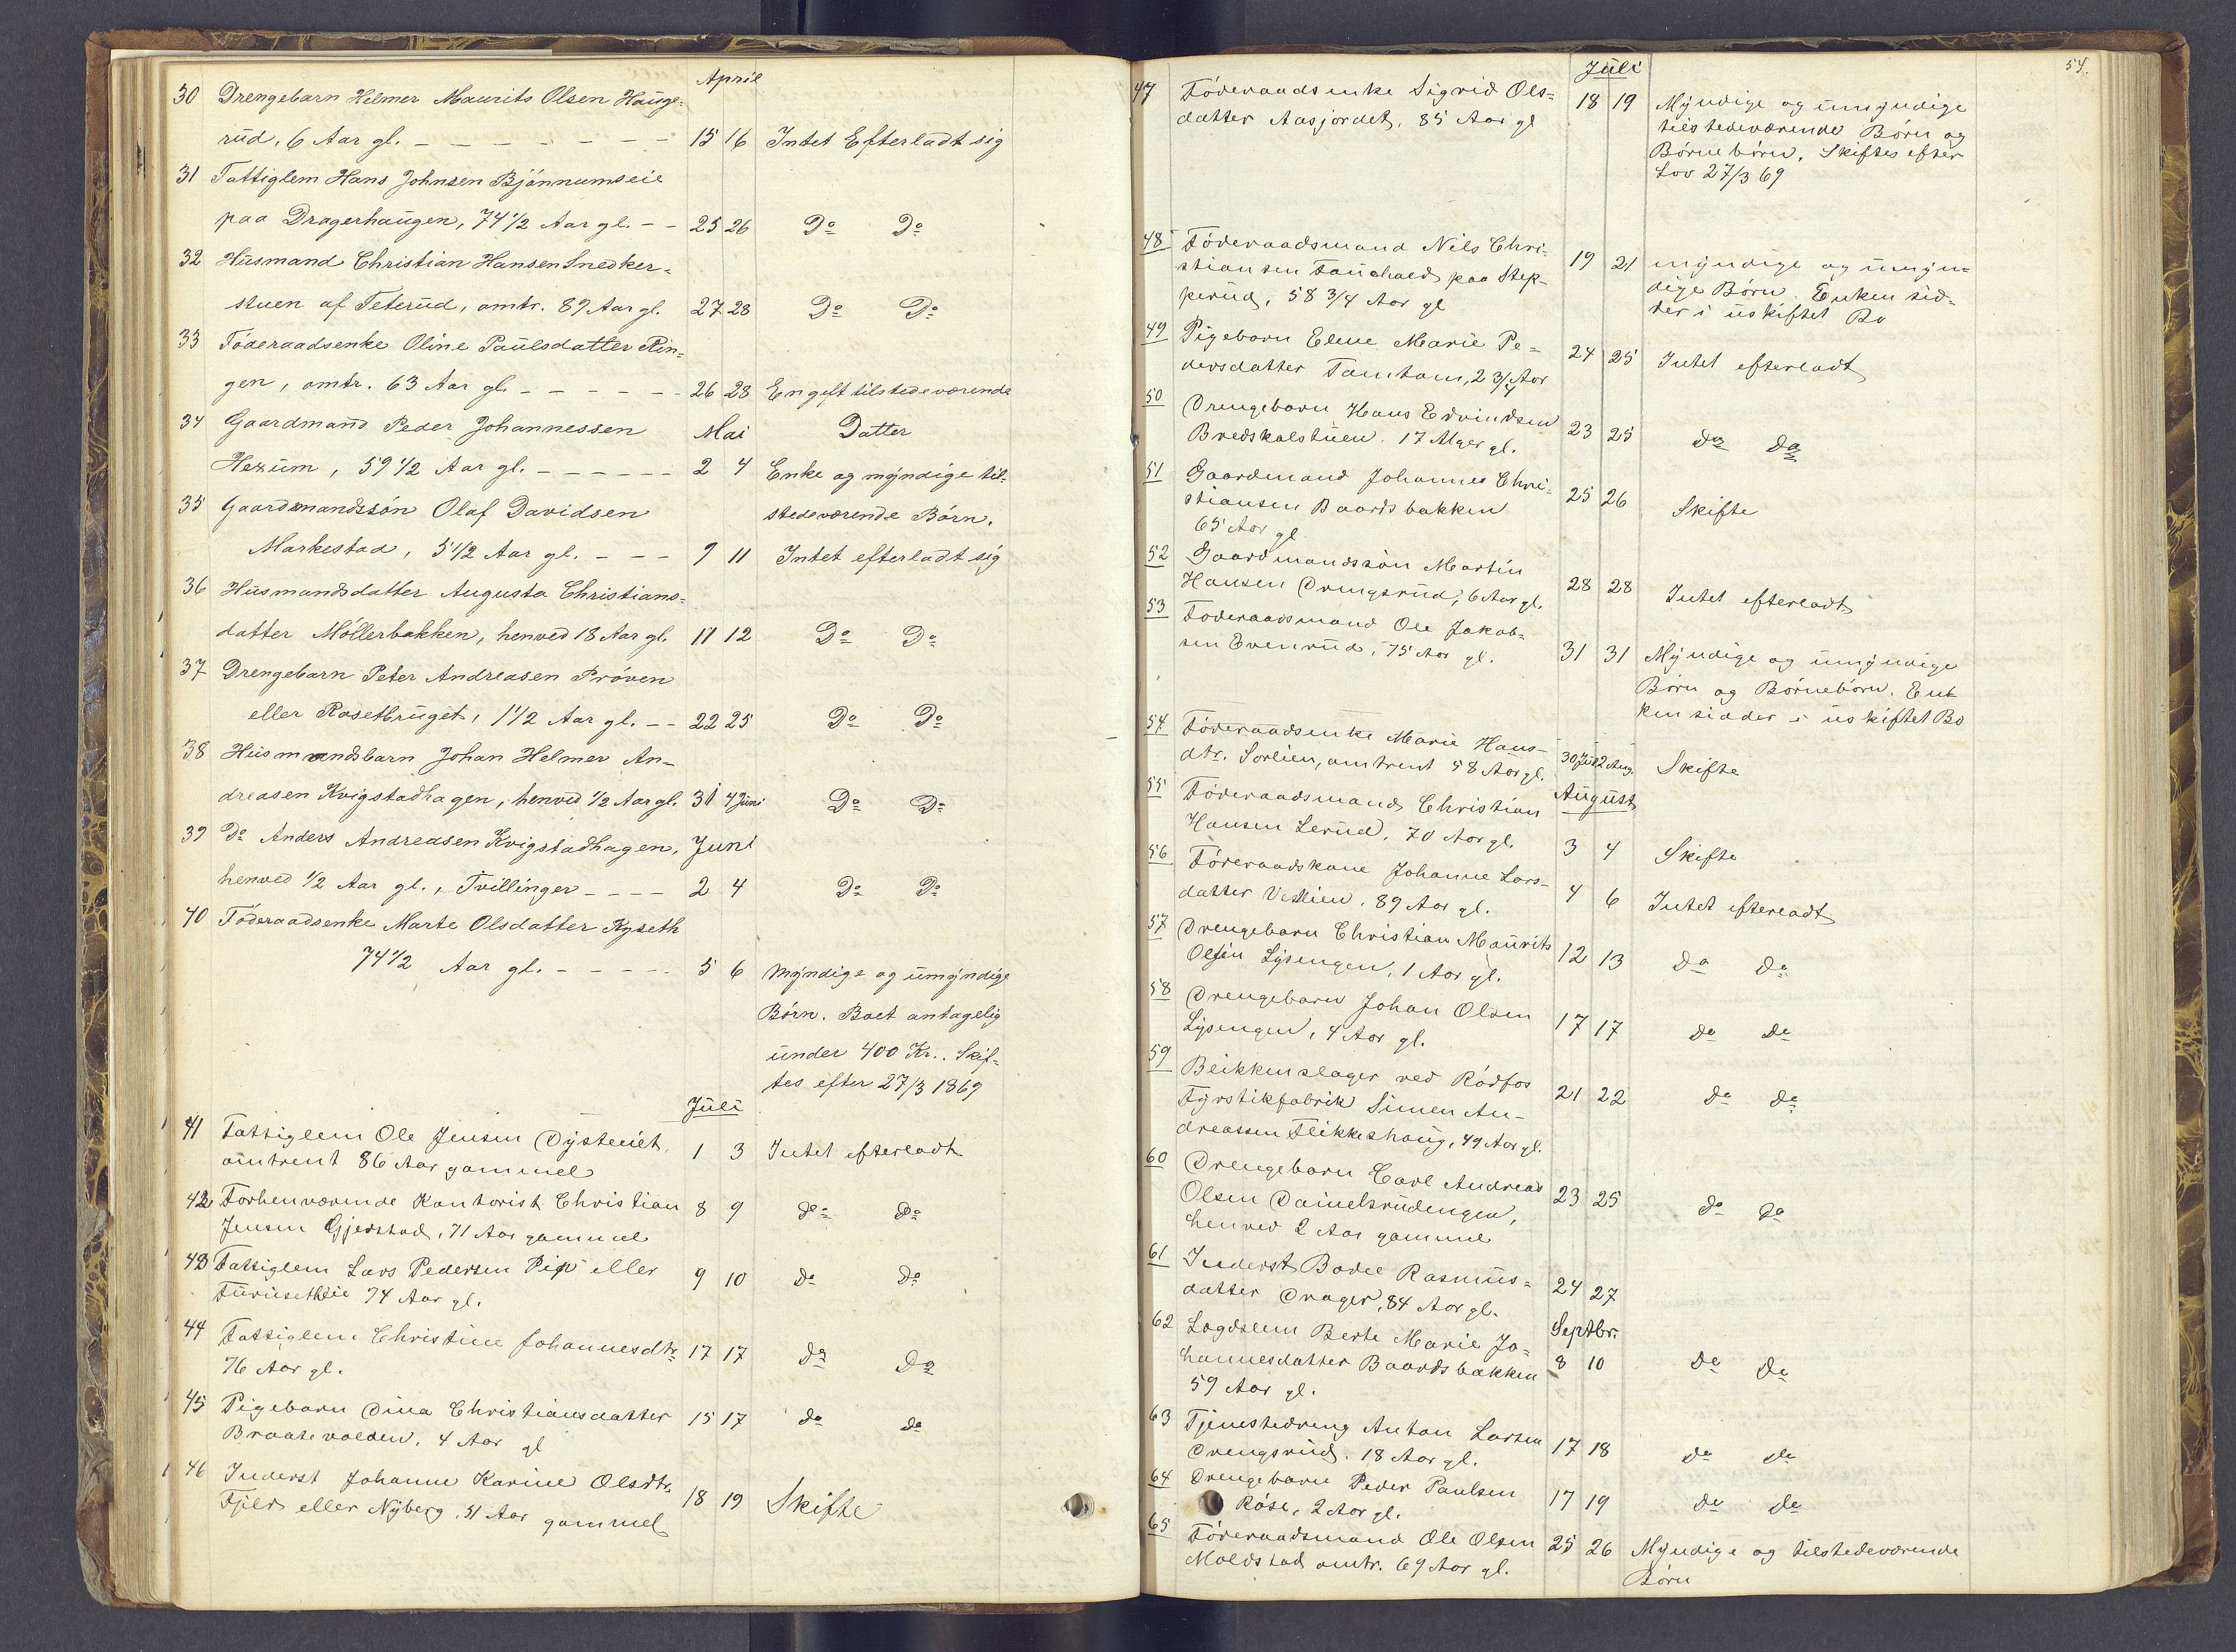 April
30 Drengebarn Helmer Maurits Olsen Hauge-
rud, 6 Aar gl. - - - - - - - 15 16 Intet Efterladt sig
31 Fattiglem Hans Johnsen Bjönnumseie
paa Dragerhaugen, 74 1/2 Aar gl. - - 25 26 Do Do
32 Husmand Christian Hansen Snedker-
stuen af Teterud, omtr. 89 Aar gl. 27 28 Do Do
33 Föderaadsenke Oline Paulsdatter Rin-
gen, omtr. 63 Aar gl. - - - - - 26 28 En gift tilstedeværende
34 Gaardmand Peder Johannessen Mai Datter
Hexum, 59 1/2 Aar gl. - - - - - - 2 4 Enke og myndige til-
35 Gaardmandssön Olaf Davidsen stedeværende Börn.
Markestad, 5 1/2 Aar gl. - - - 9 11 Intet efterladt sig
36 Husmandsdatter Augusta Christians-
datter Möllerbakken, henved 18 Aar gl. 11 12 Do Do
37 Drengebarn Peter Andreasen Pröven
eller Rosetbruget, 1 1/2 Aar gl. - - 22 25 Do Do
38 Husmandsbarn Johan Helmer An-
dreasen Kvigstadhagen, henved 1/2 Aar gl. 31 4 Juni Do Do
39 Do Anders Andreasen Kvigstadhagen, Juni
henved 1/2 Aar gl., Tvillinger - - - - 2 4 Do Do
40 Föderaadsenke Marte Olsdatter Kyseth
74 1/2 Aar gl. - - - - - 5 6 Myndige og umyndige
Börn. Boet antagelig
under 400 Kr. Skif-
tes efter 27/3 1869
Juli
41 Fattiglem Ole Jensen Dysteeiet,
omtrent 86 Aar gammel 1 3 Intet efterladt
42 Forhenværende Kontorist Christian 8 9 do do
Jensen Gjerstad, 71 Aar gammel
43 Fattiglem Lars Pedersen eller 9 10 do do
Furusetheie 74 Aar gl.
44 Fattiglem Christine Johannesdtr. 17 17 do do
76 Aar gl.
45 Pigebarn Dina Christiansdatter 15 17 do do
Braatevolden, 4 Aar gl
46 Inderst Johanne Karine Olsdtr. 18 19 Skifte
Fjeld eller Nyberg, 31 Aar gammel
54.
Juli
47 Föderaadsenke Sigrid Ols- 18 19 Myndige og umyndige
datter Aasjordet, 85 Aar gl tilstedeværende Börn og
Börnebörn. Skiftes efter
Lov 27/3 69
48 Föderaadsmand Nils Chri- 19 21 myndige og umyn-
stiansen paa Step- dige Börn. Enken sid-
perud, 58 3/4 Aar gl der i uskiftet Bo
49 Pigebarn Elene Marie Pe- 24 25 Intet efterladt
dersdatter Tomtom, 2 3/4 Aar
50 Drengebarn Hans Edvindsen 23 25 do do
Bredskalstuen. 17 Uger gl.
51 Gaardmand Johannes Chri- 25 26 Skifte
stiansen Baardsbakken
65 Aar gl
52 Gaardmandssön Martin 28 28 Intet efterladt
Hansen Drengsrud, 6 Aar gl.
53 Föderaadsmand Ole Jakob-
sen Evenrud, 75 Aar gl. 31 31 Myndige og umyndige
Börn og Börnebörn. En-
ken sidder i uskiftet Bo
54 Föderaadsenke Marie Hans-
dtr. Sorlien, omtrent 58 Aar gl. 30 Juli 2 Aug. Skifte
55 Föderaadsmand Christian August
Hansen Lerud, 70 Aar gl. 3 4 Skifte
56 Föderaadskone Johanne Lars-
datter Veslien, 89 Aar gl. 4 6 Intet efterladt
57 Drengebarn Christian Maurits 12 13 do do
Olsen Lysengen, 1 Aar gl.
58 Drengebarn Johan Olsen 17 17 do do
Lysengen, 4 Aar gl.
59 Blikkenslager ved Rödfos 21 22 do do
Fyrstikfabrik Simen An-
dreassen Flikkeshaug, 49 Aar gl.
60 Drengebarn Carl Andreas 23 25 do do
Olsen Danielsrudengen,
henved 2 Aar gammel
61 Inderst Bodil Rasmus- 24 27
datter Drager, 84 Aar gl.
62 Lægdslem Berte Marie Jo- Septbr.
hannesdatter Baardsbakken 8 10 do do
59 Aar gl.
63 Tjenestedreng Anton Larsen 17 18 do do
Drengsrud. 18 Aar gl.
64 Drengebarn Peder Paulsen 17 19 do do
Röse, 2 Aar gl.
65 Föderaadsmand Ole Olsen 25 26 Myndige og tilstedeværende
Moldstad omtr. 69 Aar gl. Börn